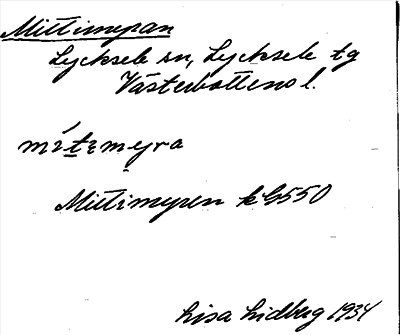 Mittimyran
Lycksele sn, Lycksele tg
Västerbottens l.
mìtımyra
Mittimyren kG550
Lisa Lidberg 1934